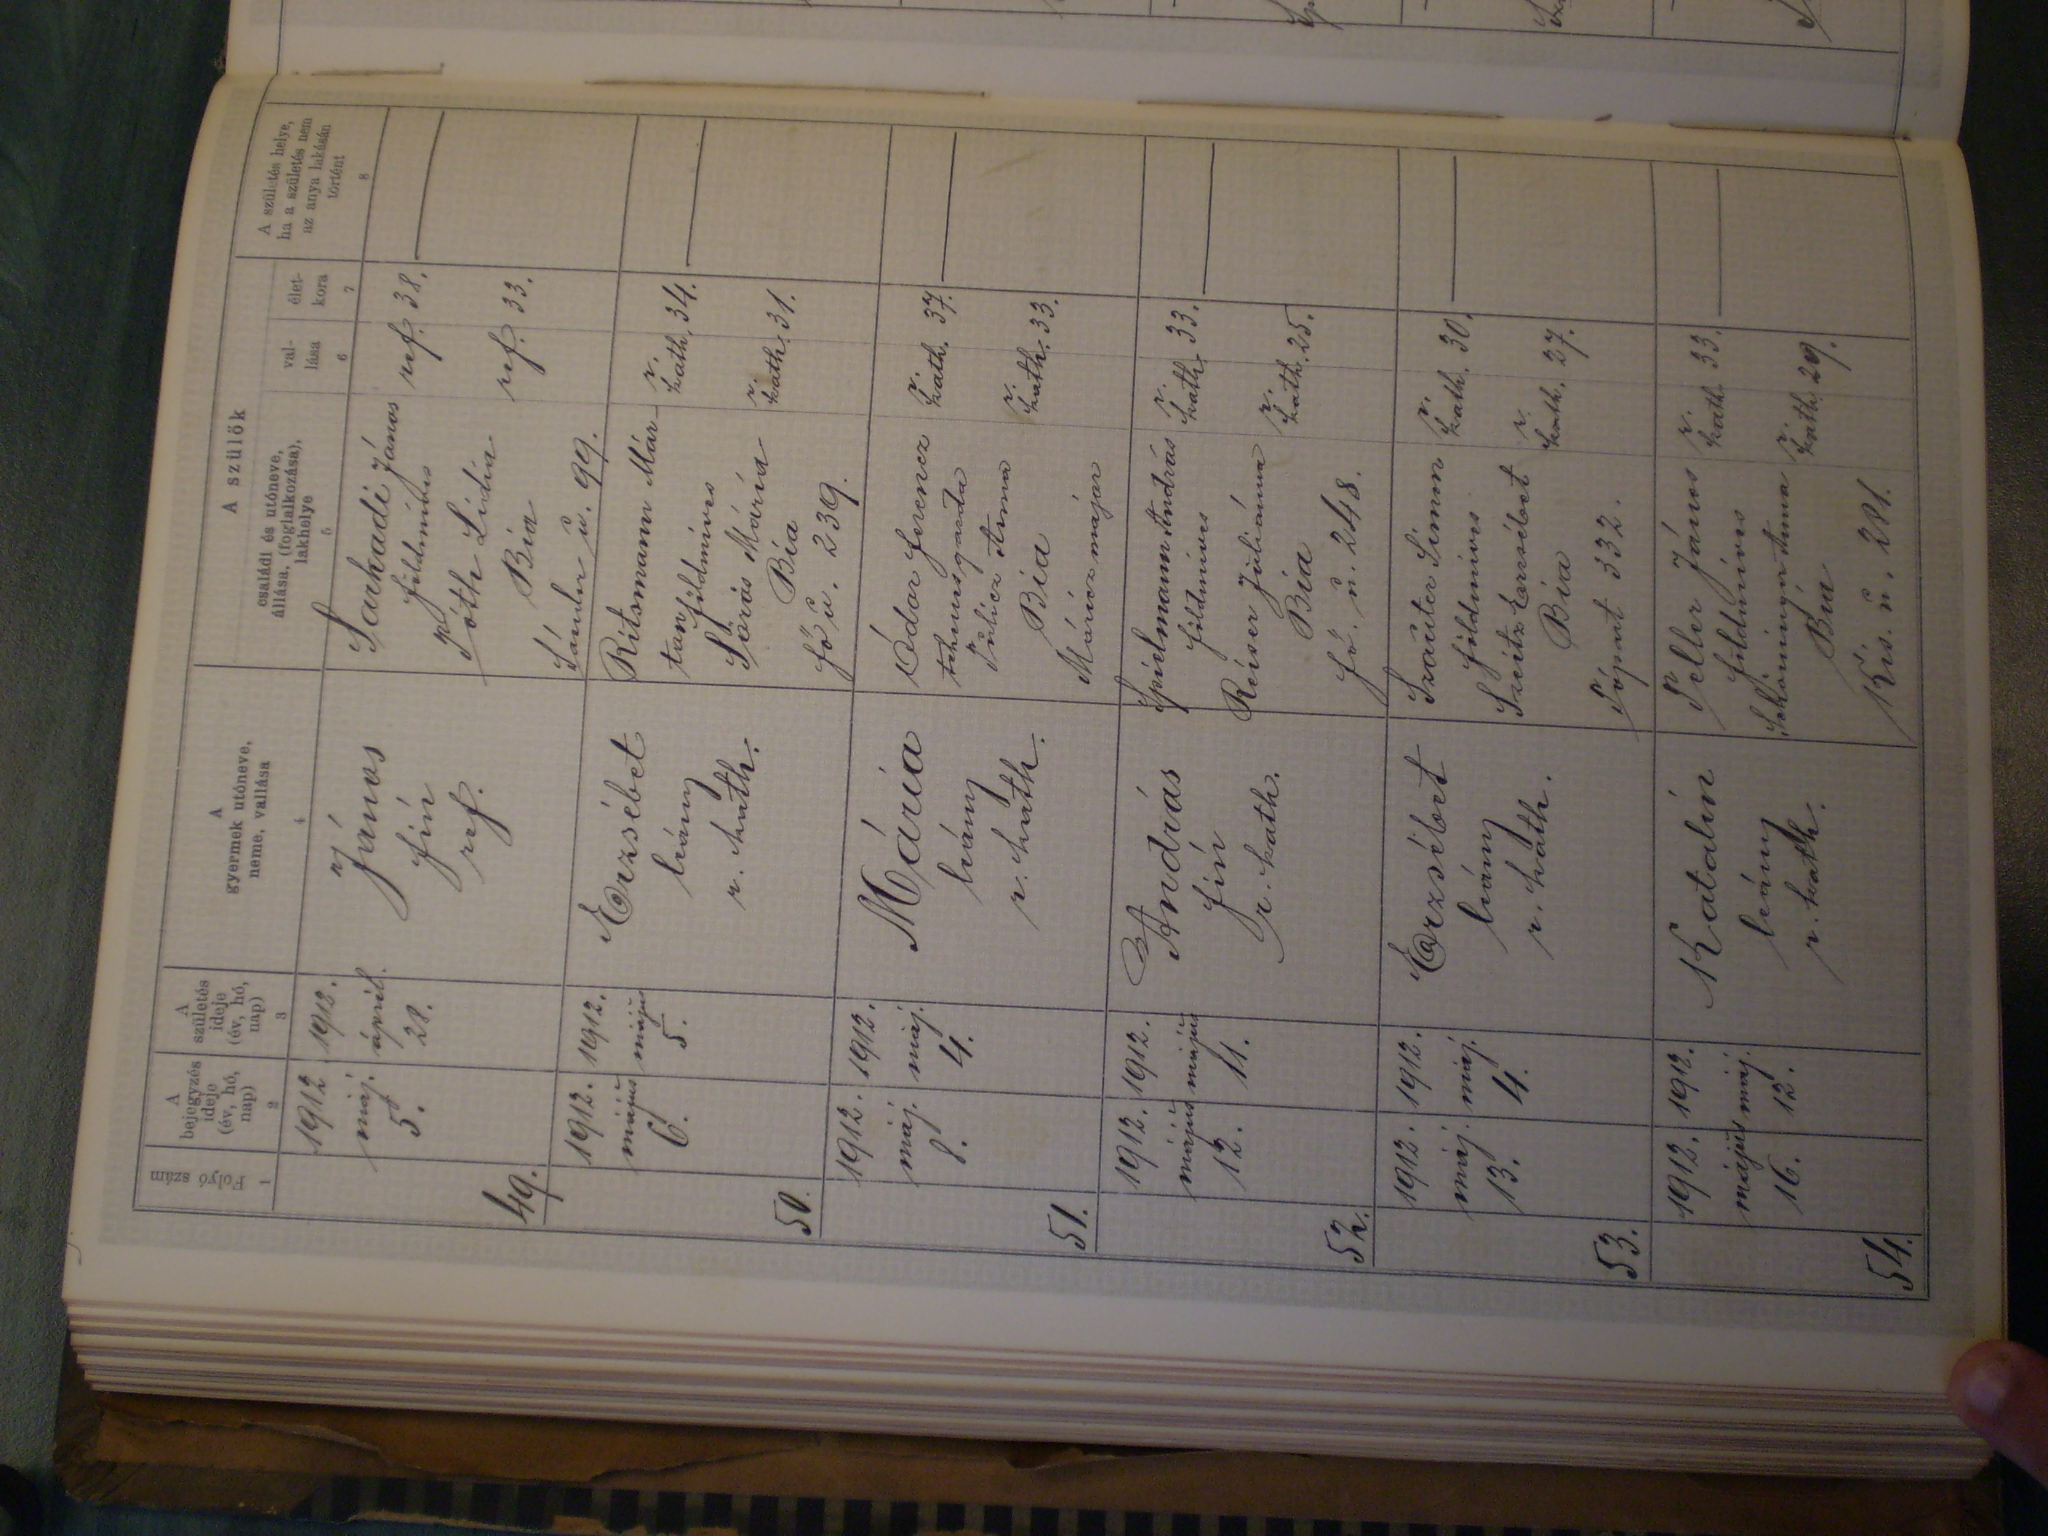 A szülők
Folyó szám
A bejegyzés ideje (év, hó, nap)
A születés ideje (év, hó, nap)
A gyermek utóneve, neme, vallása
családi és utóneve, állása, (foglalkozása), lakhelye
val-lása
élet-kora
A születés helye, ha a születés nem az anya lakásán történt
1 2 3 4 5 6 7 8
49.
1912. máj. 5.
1912. ápril. 28.
János
fiú
ref.
Sarkadi János ref. 38.
földmíves
Tóth Lidia ref. 33.
Bia
Sándor u. 99.
50.
1912. május 6.
1912. május 5.
Erzsébet
leány
r. kath.
Ritsmann Már-
tan földmíves r. kath. 34.
Mária r. kath. 31.
Bia
Fő u. 239.
51.
1912. máj. 8.
1912. máj. 4.
Mária
leány
r. kath.
Ódor Ferencz r. kath. 37.
Anna r. kath. 33.
Bia
major
52.
1912. május 12.
1912. május 11.
András
fiú
r. kath.
Spielmann András r. kath. 33.
földmíves
Reiser Juliánna r. kath. 25.
Bia
Fő. u. 248.
53.
1912. máj. 13.
1912. máj. 4.
Erzsébet
leány
r. kath.
Szauter Simon r. kath. 30.
földmíves
Szeitz Erzsébet r. kath. 27.
Bia
332.
54.
1912. május 16.
1912. máj. 12.
Katalin
leány
r. kath.
Teller János r. kath. 33.
földmíves
Anna r. kath. 29.
Bia
Kis. u. 281.